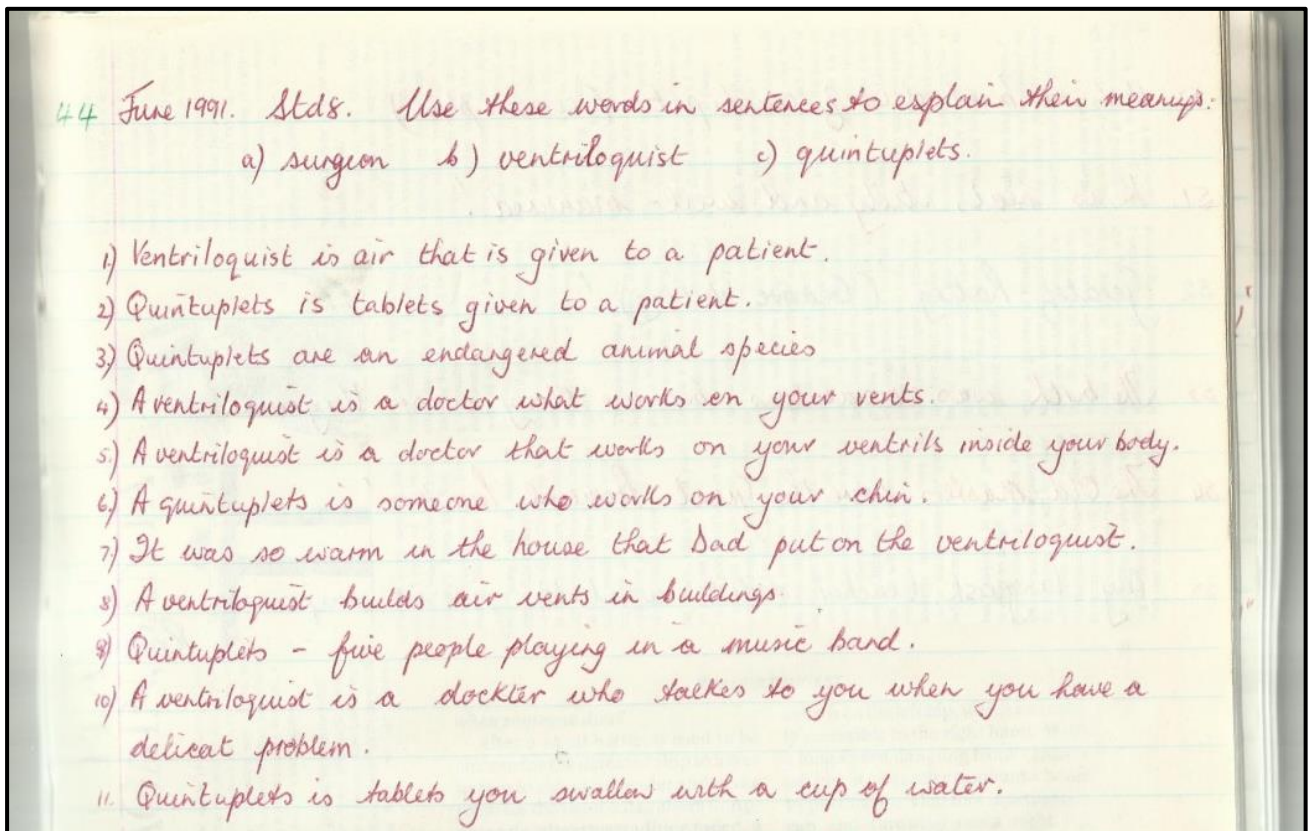 44 June 1991. Std 8. Use these words in sentences to explain their meanings:
a) surgeon b) ventriloquist c) quintuplets.
1) Ventriloquist is air that is given to a patient.
2) Quintuplets is tablets given to a patient.
3) Quintuplets are an endangered animal species
4) A ventriloquist is a doctor what works on your vents.
5.) A ventriloquist is a doctor that works on your ventrils inside your body.
6) A quintuplets is someone who works on your chin.
7) It was so warm in the house that Dad put on the ventriloquist.
8) A ventriloquist builds air vents in buildings.
9) Quintuplets - five people playing in a music band.
10) A ventriloquist is a dockter who talkes to you when you have a
delicat problem.
11. Quintuplets is tablets you swallow with a cup of water.